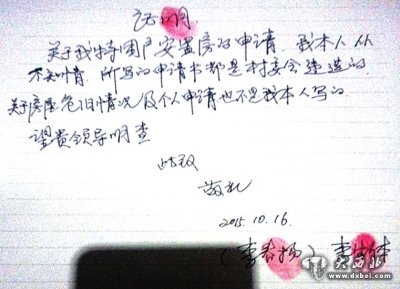 证明
关于我特困户安置房的申请，我本人从
不知情，所写的申请书都是村委会造造的，
关于房屋危旧情况及个人申请也不是我本人写的。
望贵领导明查
此致
敬礼
2015.10.16.
(李春扬) 李
www.dxbei.com